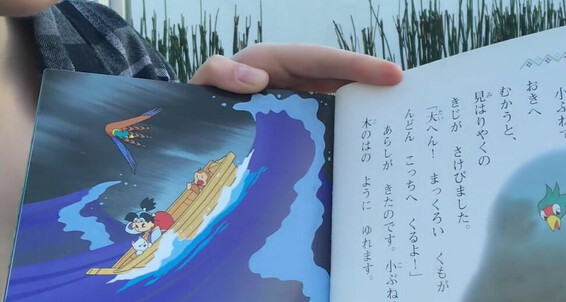 小ぶね
おきへ
むかうと、
見はりやくの
きじが さけびました。
「大へん! まっくろい くもが
んどん こっちへ くるよ!」
あらしが きたのです。小ぶね
木のはの ように ゆれます。